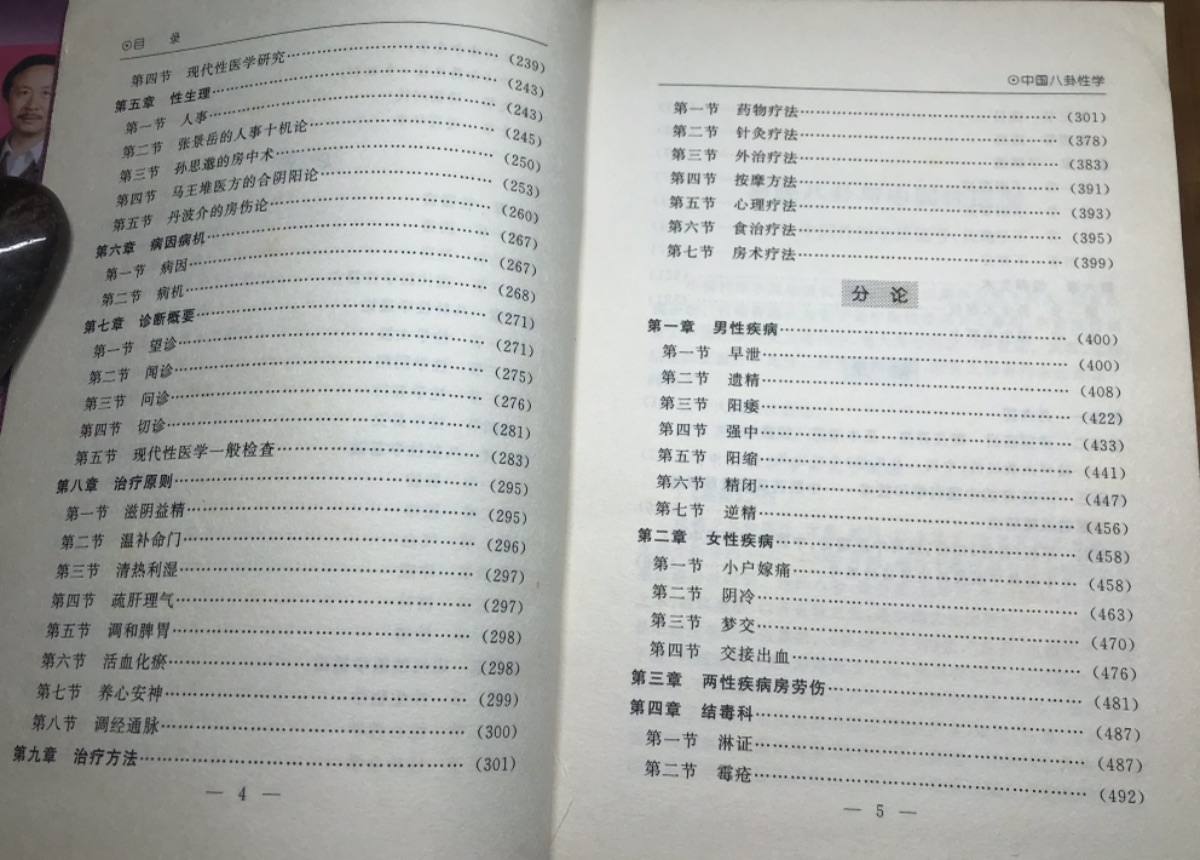 ⊙目 录
第四节 现代性医学研究……(239)
第五章 性生理……(243)
第一节 人事……(243)
第二节 张景岳的人事十机论……(245)
第三节 孙思邈的房中术……(250)
第四节 马王堆医方的合阴阳论……(253)
第五节 丹波介的房伤论……(260)
第六章 病因病机……(267)
第一节 病因……(267)
第二节 病机……(268)
第七章 诊断概要……(271)
第一节 望诊……(271)
第二节 闻诊……(275)
第三节 问诊……(276)
第四节 切诊……(281)
第五节 现代性医学一般检查……(283)
第八章 治疗原则……(295)
第一节 滋阴益精……(295)
第二节 温补命门……(296)
第三节 清热利湿……(297)
第四节 疏肝理气……(297)
第五节 调和脾胃……(298)
第六节 活血化瘀……(298)
第七节 养心安神……(299)
第八节 调经通脉……(300)
第九章 治疗方法……(301)
— 4 —
⊙中国八卦性学
第一节 药物疗法……(301)
第二节 针灸疗法……(378)
第三节 外治疗法……(383)
第四节 按摩方法……(391)
第五节 心理疗法……(393)
第六节 食治疗法……(395)
第七节 房术疗法……(399)
分 论
第一章 男性疾病……(400)
第一节 早泄……(400)
第二节 遗精……(408)
第三节 阳痿……(422)
第四节 强中……(433)
第五节 阳缩……(441)
第六节 精闭……(447)
第七节 逆精……(456)
第二章 女性疾病……(458)
第一节 小户嫁痛……(458)
第二节 阴冷……(463)
第三节 梦交……(470)
第四节 交接出血……(476)
第三章 两性疾病房劳伤……(481)
第四章 结毒科……(487)
第一节 淋证……(487)
第二节 霉疮……(492)
— 5 —